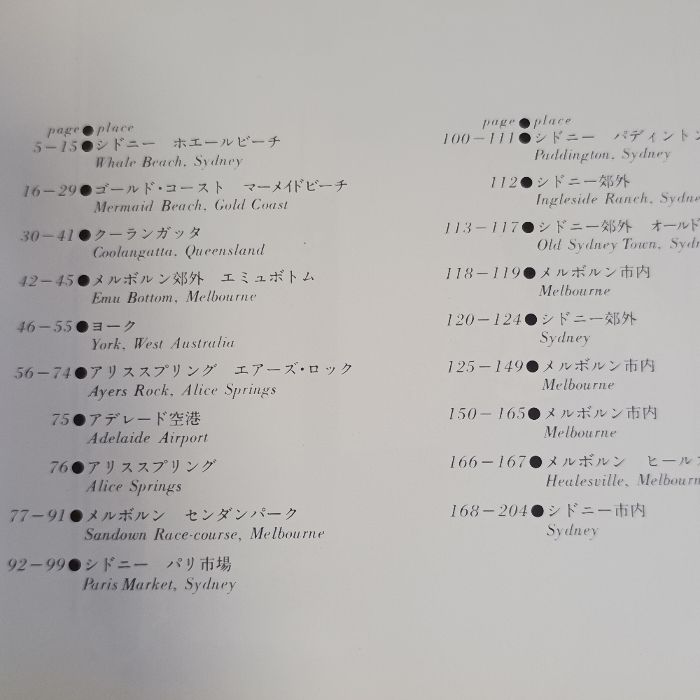 page●place
5-15●シドニー　ホエールビーチ
Whale Beach, Sydney
16-29●ゴールド・コースト　マーメイドビーチ
Mermaid Beach, Gold Coast
30-41●クーランガッタ
Coolangatta, Queensland
42-45●メルボルン郊外　エミュボトム
Emu Bottom, Melbourne
46-55●ヨーク
York, West Australia
56-74●アリススプリング　エアーズ・ロック
Ayers Rock, Alice Springs
75●アデレード空港
Adelaide Airport
76●アリススプリング
Alice Springs
77-91●メルボルン　センダンパーク
Sandown Race-course, Melbourne
92-99●シドニー　パリ市場
Paris Market, Sydney
page●place
100-111●シドニー　パディントン
Paddington, Sydney
112●シドニー郊外
Ingleside Ranch, Sydne
113-117●シドニー郊外　オールド
Old Sydney Town, Sydn
118-119●メルボルン市内
Melbourne
120-124●シドニー郊外
Sydney
125-149●メルボルン市内
Melbourne
150-165●メルボルン市内
Melbourne
166-167●メルボルン　ヒール
Healesville, Melbourn
168-204●シドニー市内
Sydney